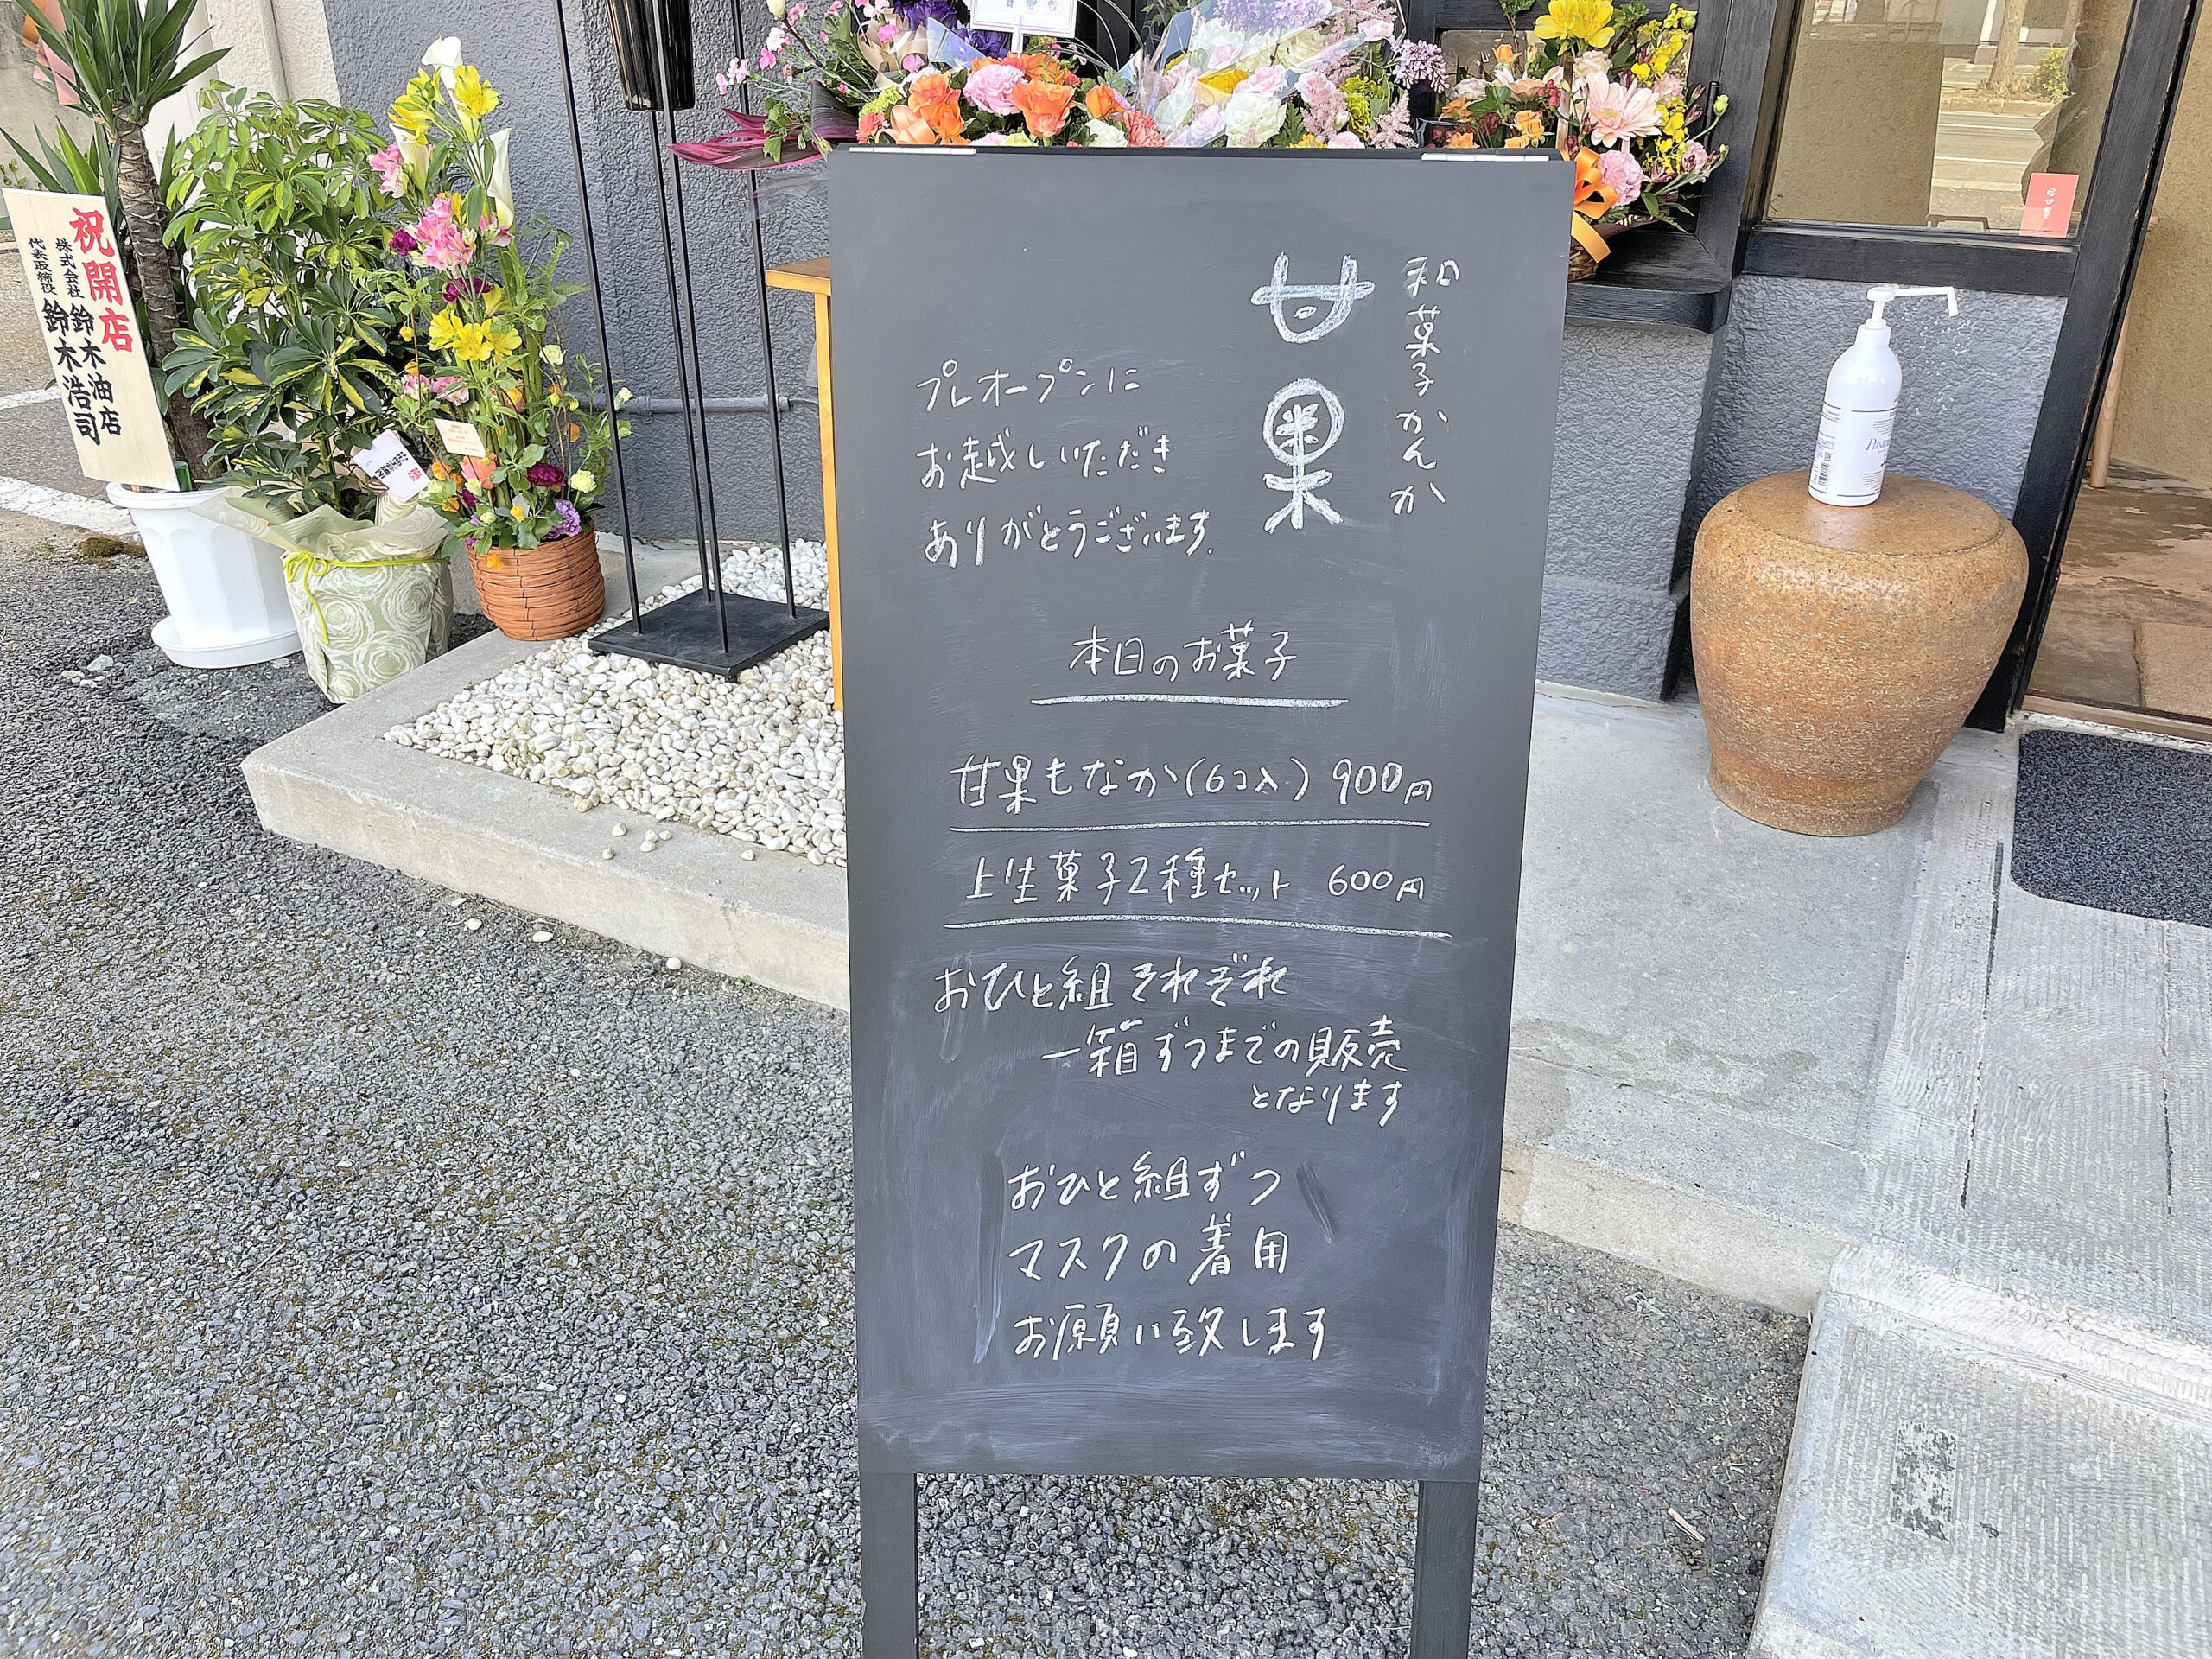 和菓子かんか
甘果
プレオープンに
お越しいただき
ありがとうございます.
本日のお菓子
甘果もなか(6コ入) 900円
上生菓子2種セット 600円
おひと組それぞれ
一箱ずつまでの販売
となります
おひと組ずつ
マスクの着用
お願い致します
祝開店
株式会社 鈴木油店
代表取締役 鈴木浩司